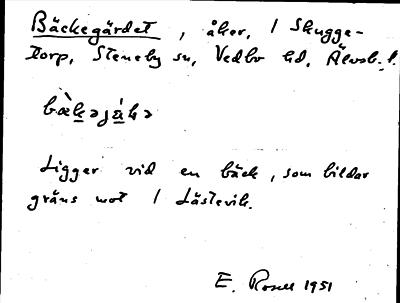 Bäckegärdet, åker, / Skugge-
torp, Steneby sn, Vedbo hd, Älvsb. l.
Ligger vid en bäck, som bildar
gräns mot / Låstevik.
E. Rosell 1951